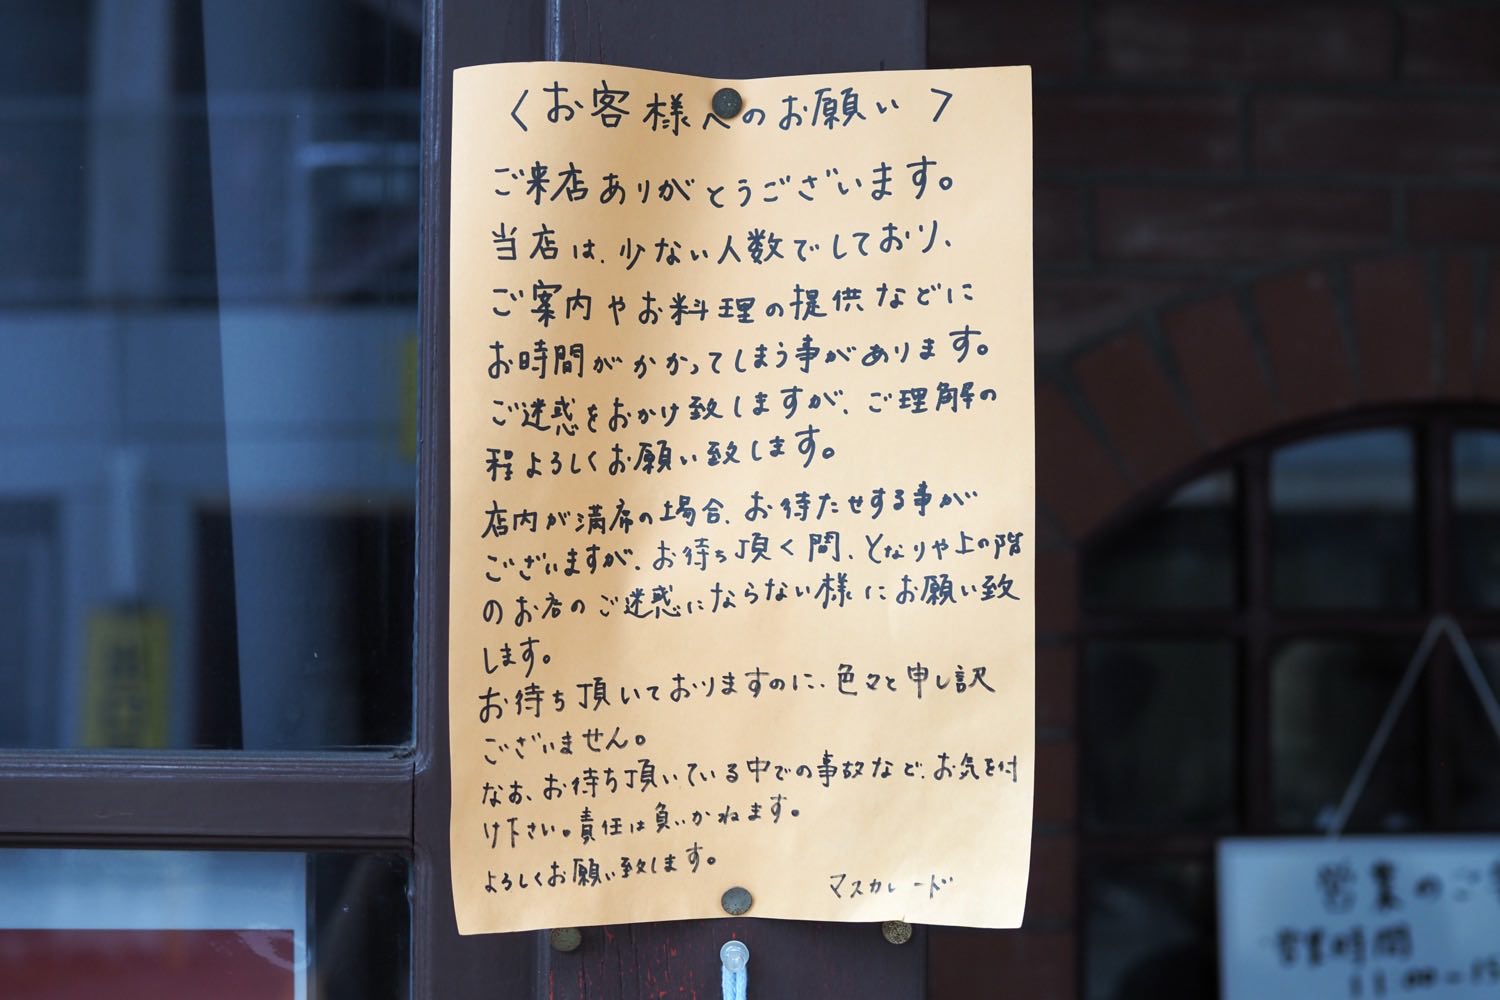 〈お客様へのお願い〉
ご来店ありがとうございます。
当店は、少ない人数でしており、
ご案内やお料理の提供などに
お時間がかかってしまう事があります。
ご迷惑をおかけ致しますが、ご理解の
程よろしくお願い致します。
店内が満席の場合、お待たせする事が
ございますが、お待ち頂く間、となりや上の階
のお店のご迷惑にならない様にお願い致
します。
お待ち頂いておりますのに、色々と申し訳
ございません。
なお、お待ち頂いている中での事故など、お気を付
け下さい。責任は負いかねます。
よろしくお願い致します。
マスカレード
営業のご
営業時間
11:00-15